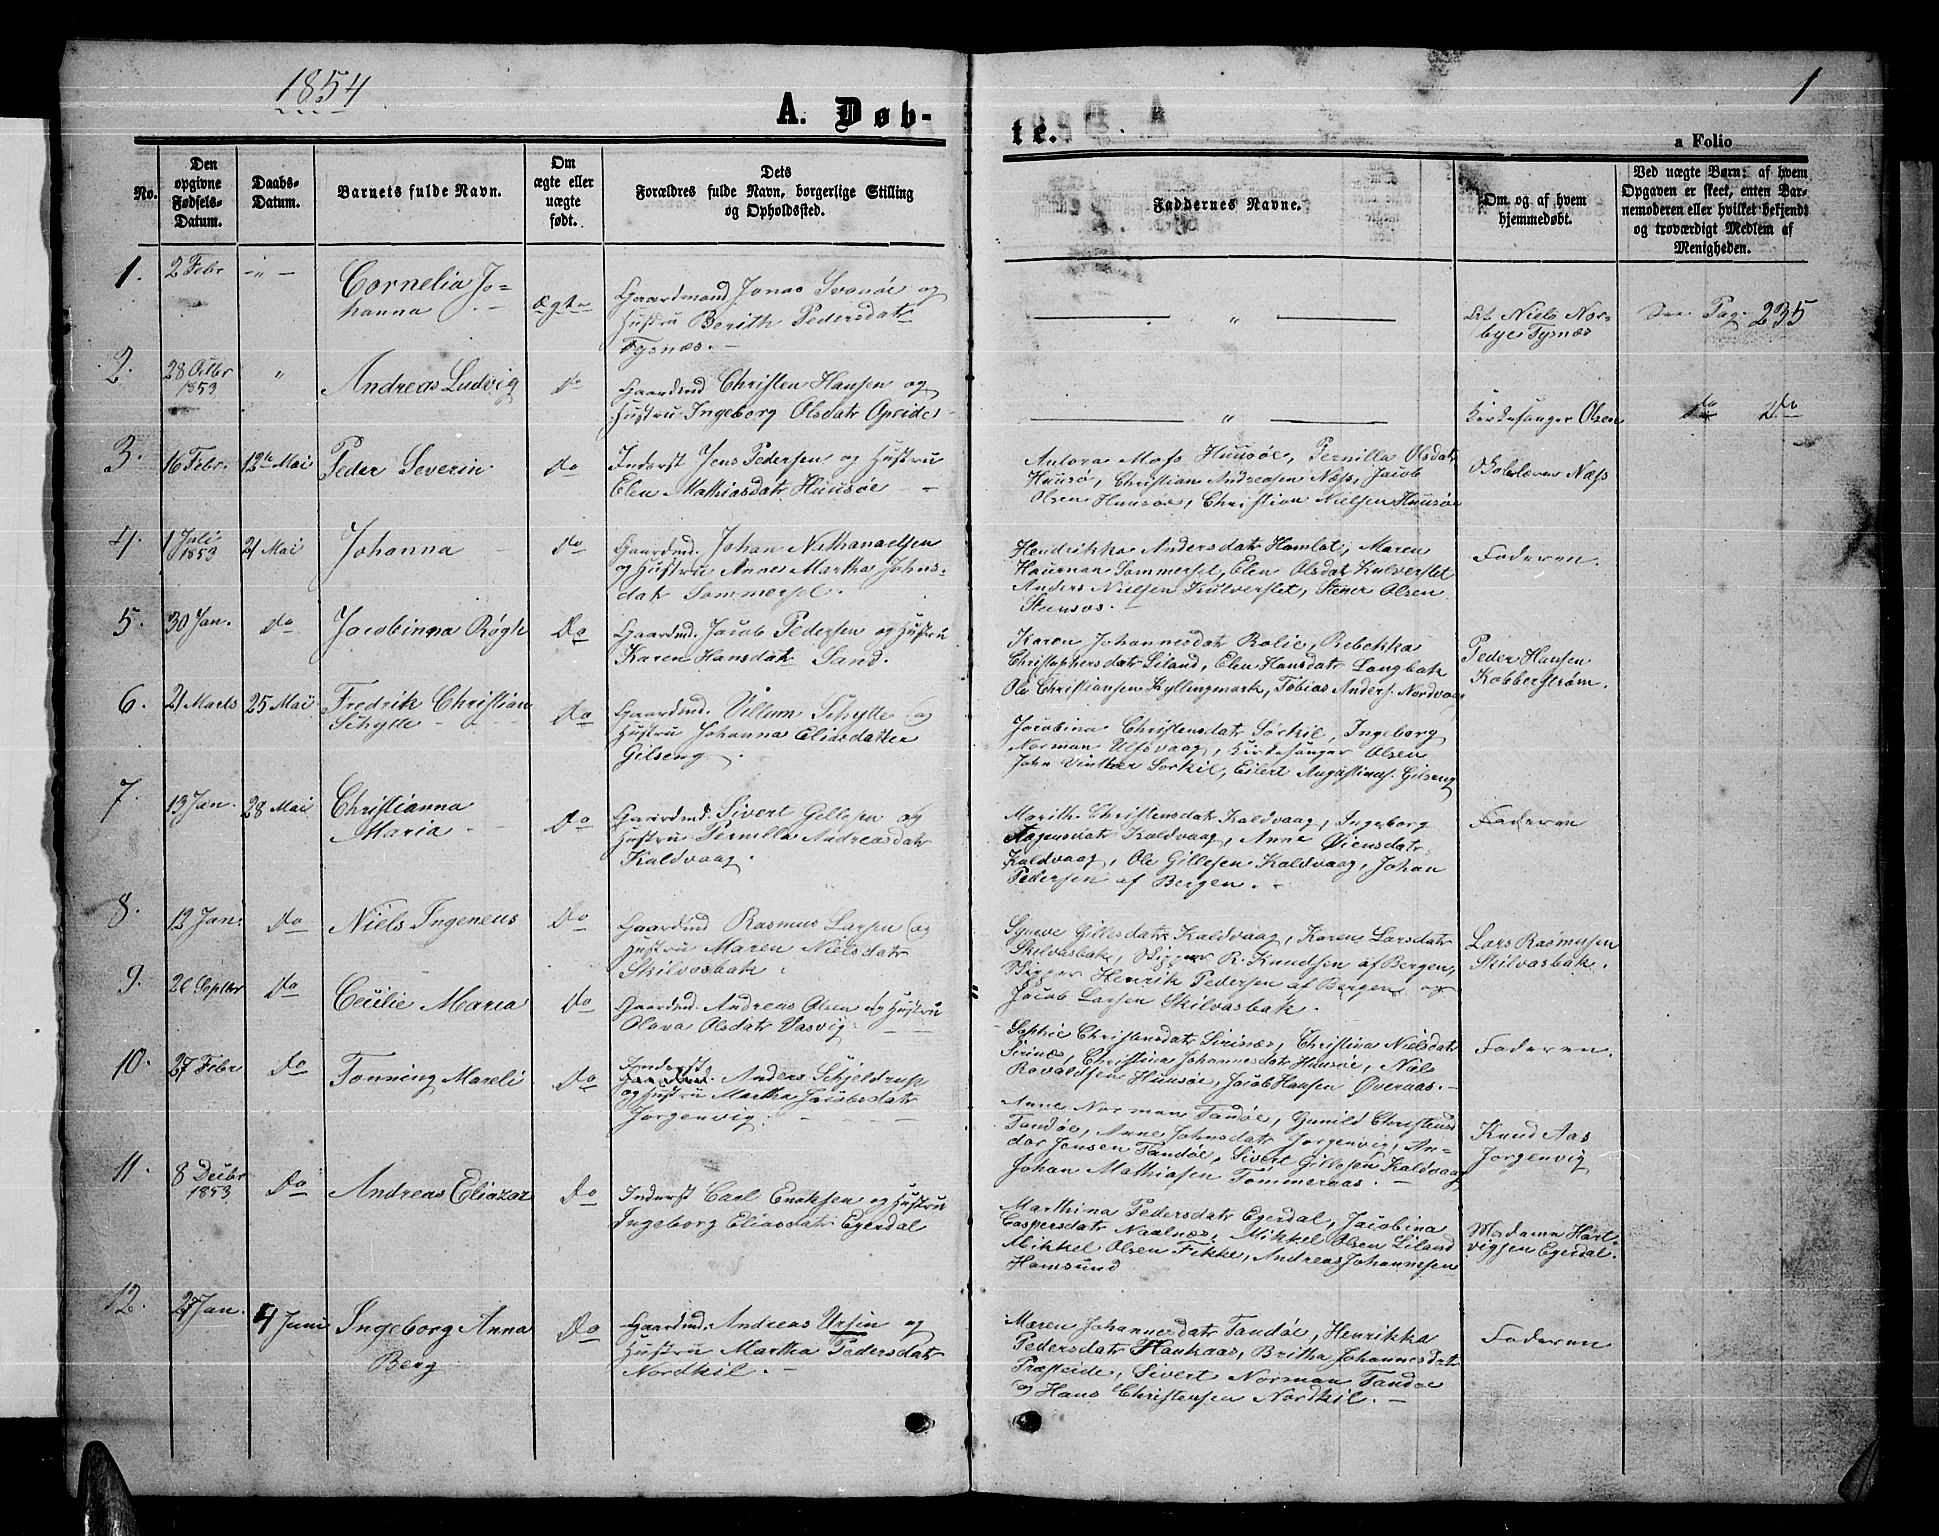 1854
1
A. Døb-
te.
a Folio
No.
Den
opgivne
Fødsels-
Datum.
Daabs-
Datum.
Barnets fulde Navn.
Om
ægte eller
uægte
født.
Dets
Forældres fulde Navn, borgerlige Stilling
og Opholdssted.
Faddernes Navne.
Om og af hvem
hjemmedøbt.
Ved uægte Børn: af hvem
Opgaven er skeet, enten Bar-
nemoderen eller hvilket bekjendt
og troværdigt Medlem af
Menigheden.
1.
2 Febr
- „ -
Cornelia Jo-
hanna
ægte
Gaardmand Jonas Svonøe og
Hustru Berith Pedersdatr
Tysnæs.
„
Niels Nor-
bye Tysnæs
See Pag. 235
2.
28 Octbr
1853
„
Andreas Ludvig
do
Gaardmd Christen Hansen og
Hustru Ingeborg Olsdatr Opeide
„
Kirkesanger Olsen
do Do
3.
16 Febr.
12te Mai
Peder Severin
do
Inderst Jens Pedersen og Hustru
Elen Mathiasdatr Huusøe
Aulora Moss Huusøe, Pernilla Olsdatr
Huusø, Christian Andreasen Næss, Jacob
Olsen Huusøe, Christian Nielsen Huusøe
Skolelærer Næss
4.
1 Juli
1853
21 Mai
Johanna
do
Gaardmd. Johan Nathanaelsen
og Hustru Anne Martha Johns-
datr Sommersel.
Hendrikka Andersdatr Hamlot, Maren
Sommersel, Elen Olsdatr Kalverslet
Anders Nielsen Kulverslet, Stener Olsen
Stunsøs.
Faderen.
5.
30 Jan.
do
Jacobinna Røgh
Do
Gaardmd. Jacob Pedersen og Hustru
Karen Hansdatr Sand.
Karen Johannesdatr Rolie, Rebekka
Christophersdatr Liland, Elen Hansdatr Langbak
Ole Christiansen Kyllingmark, Tobias Anders. Nordvaag
Peder Hansen
Kobberstrøm.
6.
21 Marts
25 Mai
Fredrik Christian
Schytte
Do
Gaardmd. Villum Schytte og
Hustru Johanna Eliasdatter
Gilseng.
Jacobina Christensdatr Sørkil, Ingeborg
Norman Ulfsvaag, Kirkesanger Olsen
John Vinther Sorkil, Eilert Augustinus. Gilseng
7.
13 Jan.
28 Mai
Christianna
Maria.
Do
Gaardmd. Sivert Gillesen og
Hustru Pernilla Andreasdatr
Kaldvaag.
Marith Christensdatr Kaldvaag, Ingeborg
Aagensdatr Kaldvaag, Anne Øiensdatr
Kaldvaag, Ole Gillesen Kaldvaag, Johan
Pedersen af Bergen.
Faderen
8.
12 Jan.
Do
Niels Ingeneus
Do
Gaardmd Rasmus Larsen og
Hustru Maren Nielsdatr
Skilvasbak.
Gillesdatr Kaldvaag, Karen Larsdatr
Skilvasbak, Skipper R. Knudsen af Bergen,
Skipper Henrik Pedersen af Bergen og
Jacob Larsen Skilvasbak.
Lars Rasmusen
Skilvasbak.
9.
26 Septbr
Do
Cecilie Maria
Do
Gaardmd. Andreas Olsen og Hustru
Olava Olsdatr Vasvig
Sophie Christensdatr Sirinæs, Christina Nielsdatr
Sirinæs, Christina Johannesdatr Huusøe, Niels
Ravaldsen Huusøe, Jacob Hansen Øveraas.
Faderen.
10.
27 Febr
Do
Tonning Mareli
Do
Inderst
Gaardmd. Anders Schjeldrup
og Hustru Martha Jacobsdatr
Jorgenvig.
Anne Norman Tandøe, Gunild Christens
Tandøe, Anne Johnsdatr Jorgenvig, An-
der Jensen Tandøe, Sivert Gillesen Kaldvaag
Johan Mathiasen Tømmeraas.
Knud Aas
Jorgenvig
11.
8 Decbr
1853
Do
Andreas Eliazar
Do
Inderst Carl Enoksen og Hustru
Ingeborg Eliasdatr Egerdal
Marthina Pedersdatr Egerdal, Jacobina
Caspersdatr Naalnæs, Mikkel Olsen Liland
Mikkel Olsen Fikke, Andreas Johannesen
Hamsund
Madame Hart-
vigsen Egerdal.
12.
27 Jan.
4 Juni
Ingeborg Anna
Berg
Do
Gaardmd. Andreas Ursin og
Hustru Martha Pedersdatr
Nordkil.
Maren Johannesdatr Tandøe, Henrikka
Pedersdatr Haukaas, Britha Johannesdatr
Præsteide, Sivert Norman Tandøe
og Hans Christensen Nordkil.
Faderen